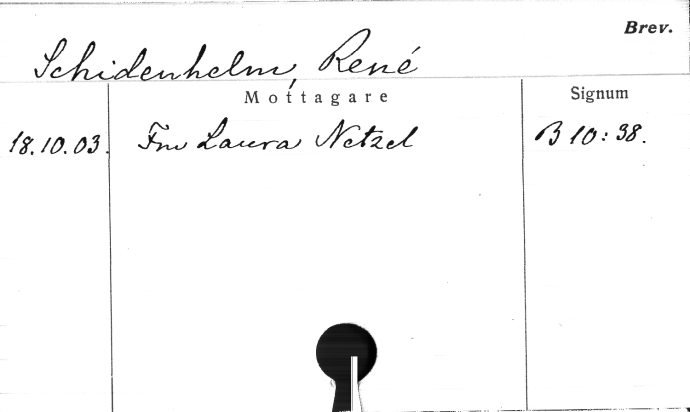 Brev.
Schidenhelm, René
Mottagare
Signum
18.10.03. Fru Laura Netzel B 10:38.